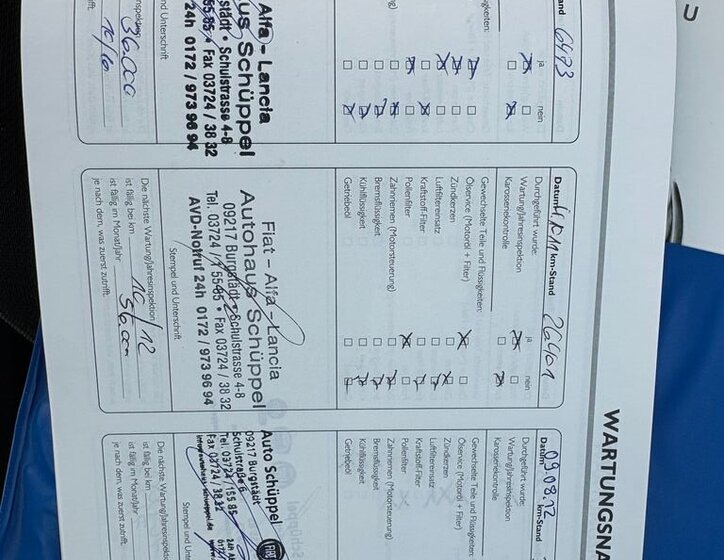 WARTUNGSNA
km-Stand 6493
ja nein
Autohaus Schüppel
Fax 03724 / 38 32
0172 / 973 96 94
Stempel und Unterschrift
36.000
Datum km-Stand 26401
Durchgeführt wurde: ja nein
Wartung/Jahresinspektion
Karosseriekontrolle
Gewechselte Teile und Flüssigkeiten:
Ölservice (Motoröl + Filter)
Zündkerzen
Luftfiltereinsatz
Kraftstoff-Filter
Pollenfilter
Zahnriemen (Motorsteuerung)
Bremsflüssigkeit
Kühlflüssigkeit
Getriebeöl
Fiat - Alfa - Lancia
Autohaus Schüppel
09217 Burgstädt • Schulstrasse 4-8
Tel. 03724 / 15 55-85 • Fax 03724 / 38 32
AVD-Notruf 24h 0172 / 973 96 94
Stempel und Unterschrift
Die nächste Wartung/Jahresinspektion
ist fällig bei km 56.000
ist fällig im Monat/Jahr 10/12
je nach dem, was zuerst zutrifft.
Datum 09.08.12 km-Stand
Durchgeführt wurde:
Wartung/Jahresinspektion
Karosseriekontrolle
Gewechselte Teile und Flüssigkeiten:
Ölservice (Motoröl + Filter)
Zündkerzen
Luftfiltereinsatz
Kraftstoff-Filter
Pollenfilter
Zahnriemen (Motorsteuerung)
Bremsflüssigkeit
Kühlflüssigkeit
Getriebeöl
Auto Schüppel
09217 Burgstädt
Schulstraße 6
Tel. 03724 / 155 85
Fax 03724 / 38 32
Stempel und Unterschrift
Die nächste Wartung/Jahresinspektion
ist fällig bei km
ist fällig im Monat/Jahr
je nach dem, was zuerst zutrifft.